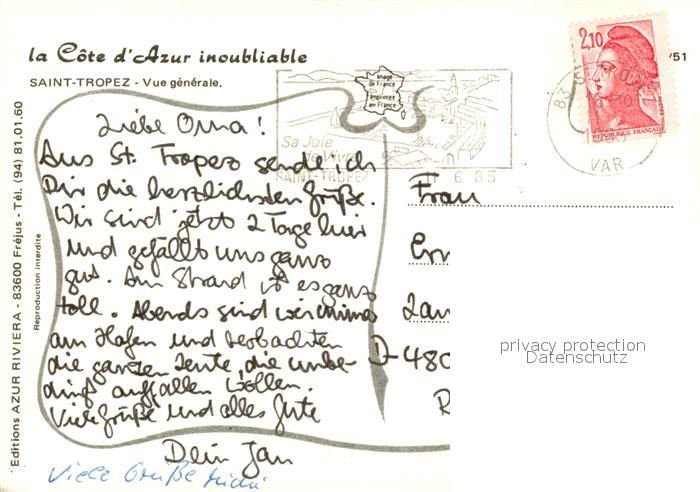 la Côte d'Azur inoubliable
SAINT-TROPEZ - Vue générale.
Editions AZUR RIVIERA - 83600 Fréjus - Tél. (94) 81.01.60
Reproduction interdite
Image
de France
Imprimée
en France
Sa Joie
de Vivre
SAINT-TROPEZ
6 85
2,10
REPUBLIQUE FRANÇAISE
POSTES
83
VAR
/51
Liebe Oma!
Aus St. Tropez sende ich
Dir die herzlichsten Grüße.
Wir sind jetzt 2 Tage hier
und gefällt uns ganz
gut. Am Strand ist es ganz
toll. Abends sind wir immer
am Hafen und beobachten
die ganzen Leute, die unbe-
dingt auffallen wollen.
Viele Grüße und alles Gute
Dein Jan
Viele Grüße
Frau
D-480
privacy protection
Datenschutz